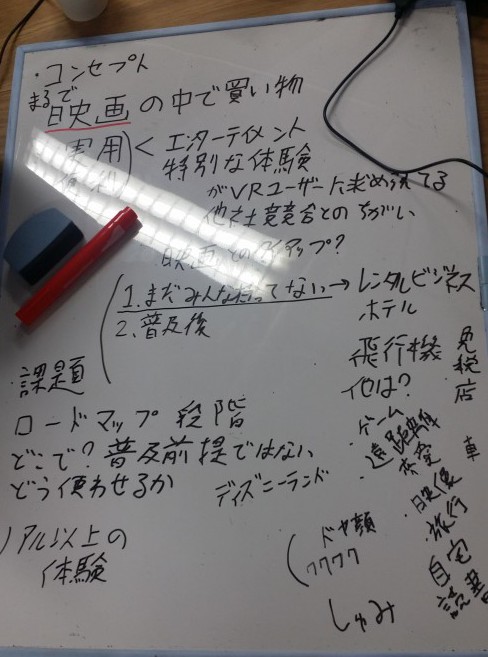 ・コンセプト
まるで
映画の中で買い物
実用 < エンターテイメント
特別な体験
がVRユーザーに求められてる
他社競合とのちがい
映画とのタイアップ?
1.まだみんな持ってない→レンタルビジネス
2.普及後
ホテル
飛行機
免税店
他は?
・課題
ロードマップ 段階
どこで?普及前提ではない
どう使わせるか
ディズニーランド
リアル以上の
体験
・ゲーム
・遠距離
車
・映像
・旅行
自宅
ドヤ顔
ワクワク
しゅみ